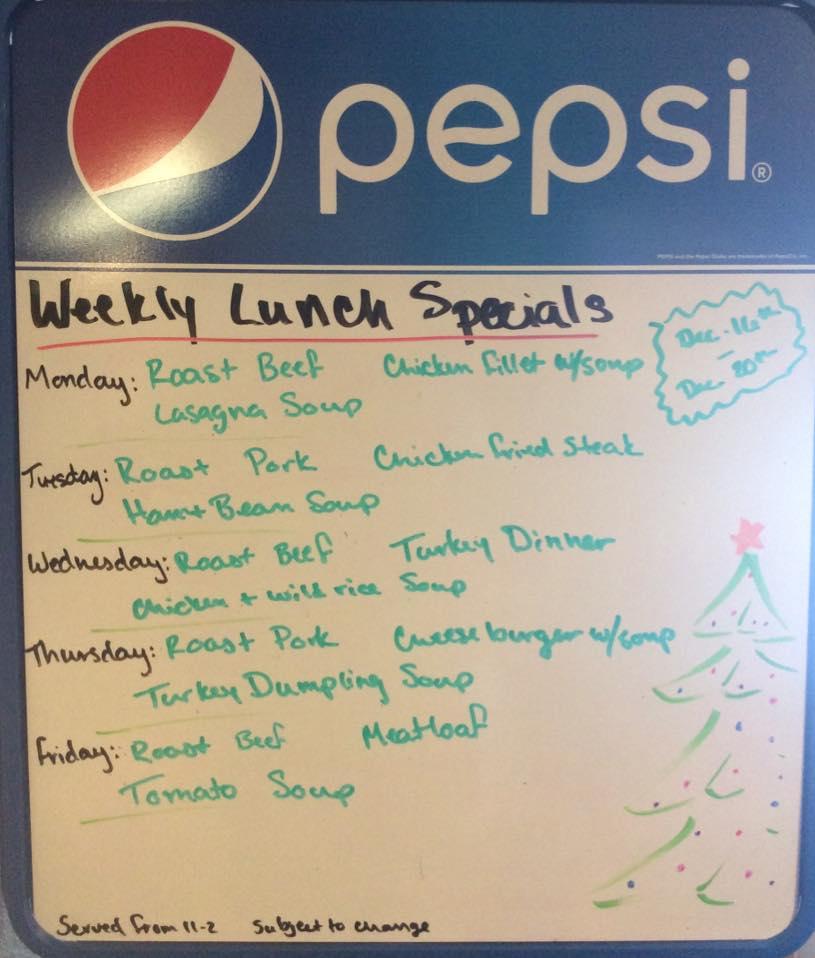 pepsi®
Weekly Lunch Specials
Dec. 16th
-
Dec. 20th
Monday: Roast Beef Chicken fillet w/soup
Lasagna Soup
Tuesday: Roast Pork Chicken fried Steak
Ham + Bean Soup
Wednesday: Roast Beef Turkey Dinner
Chicken + wild rice Soup
Thursday: Roast Pork Cheeseburger w/soup
Turkey Dumpling Soup
Friday: Roast Beef Meatloaf
Tomato Soup
Served from 11-2 Subject to change